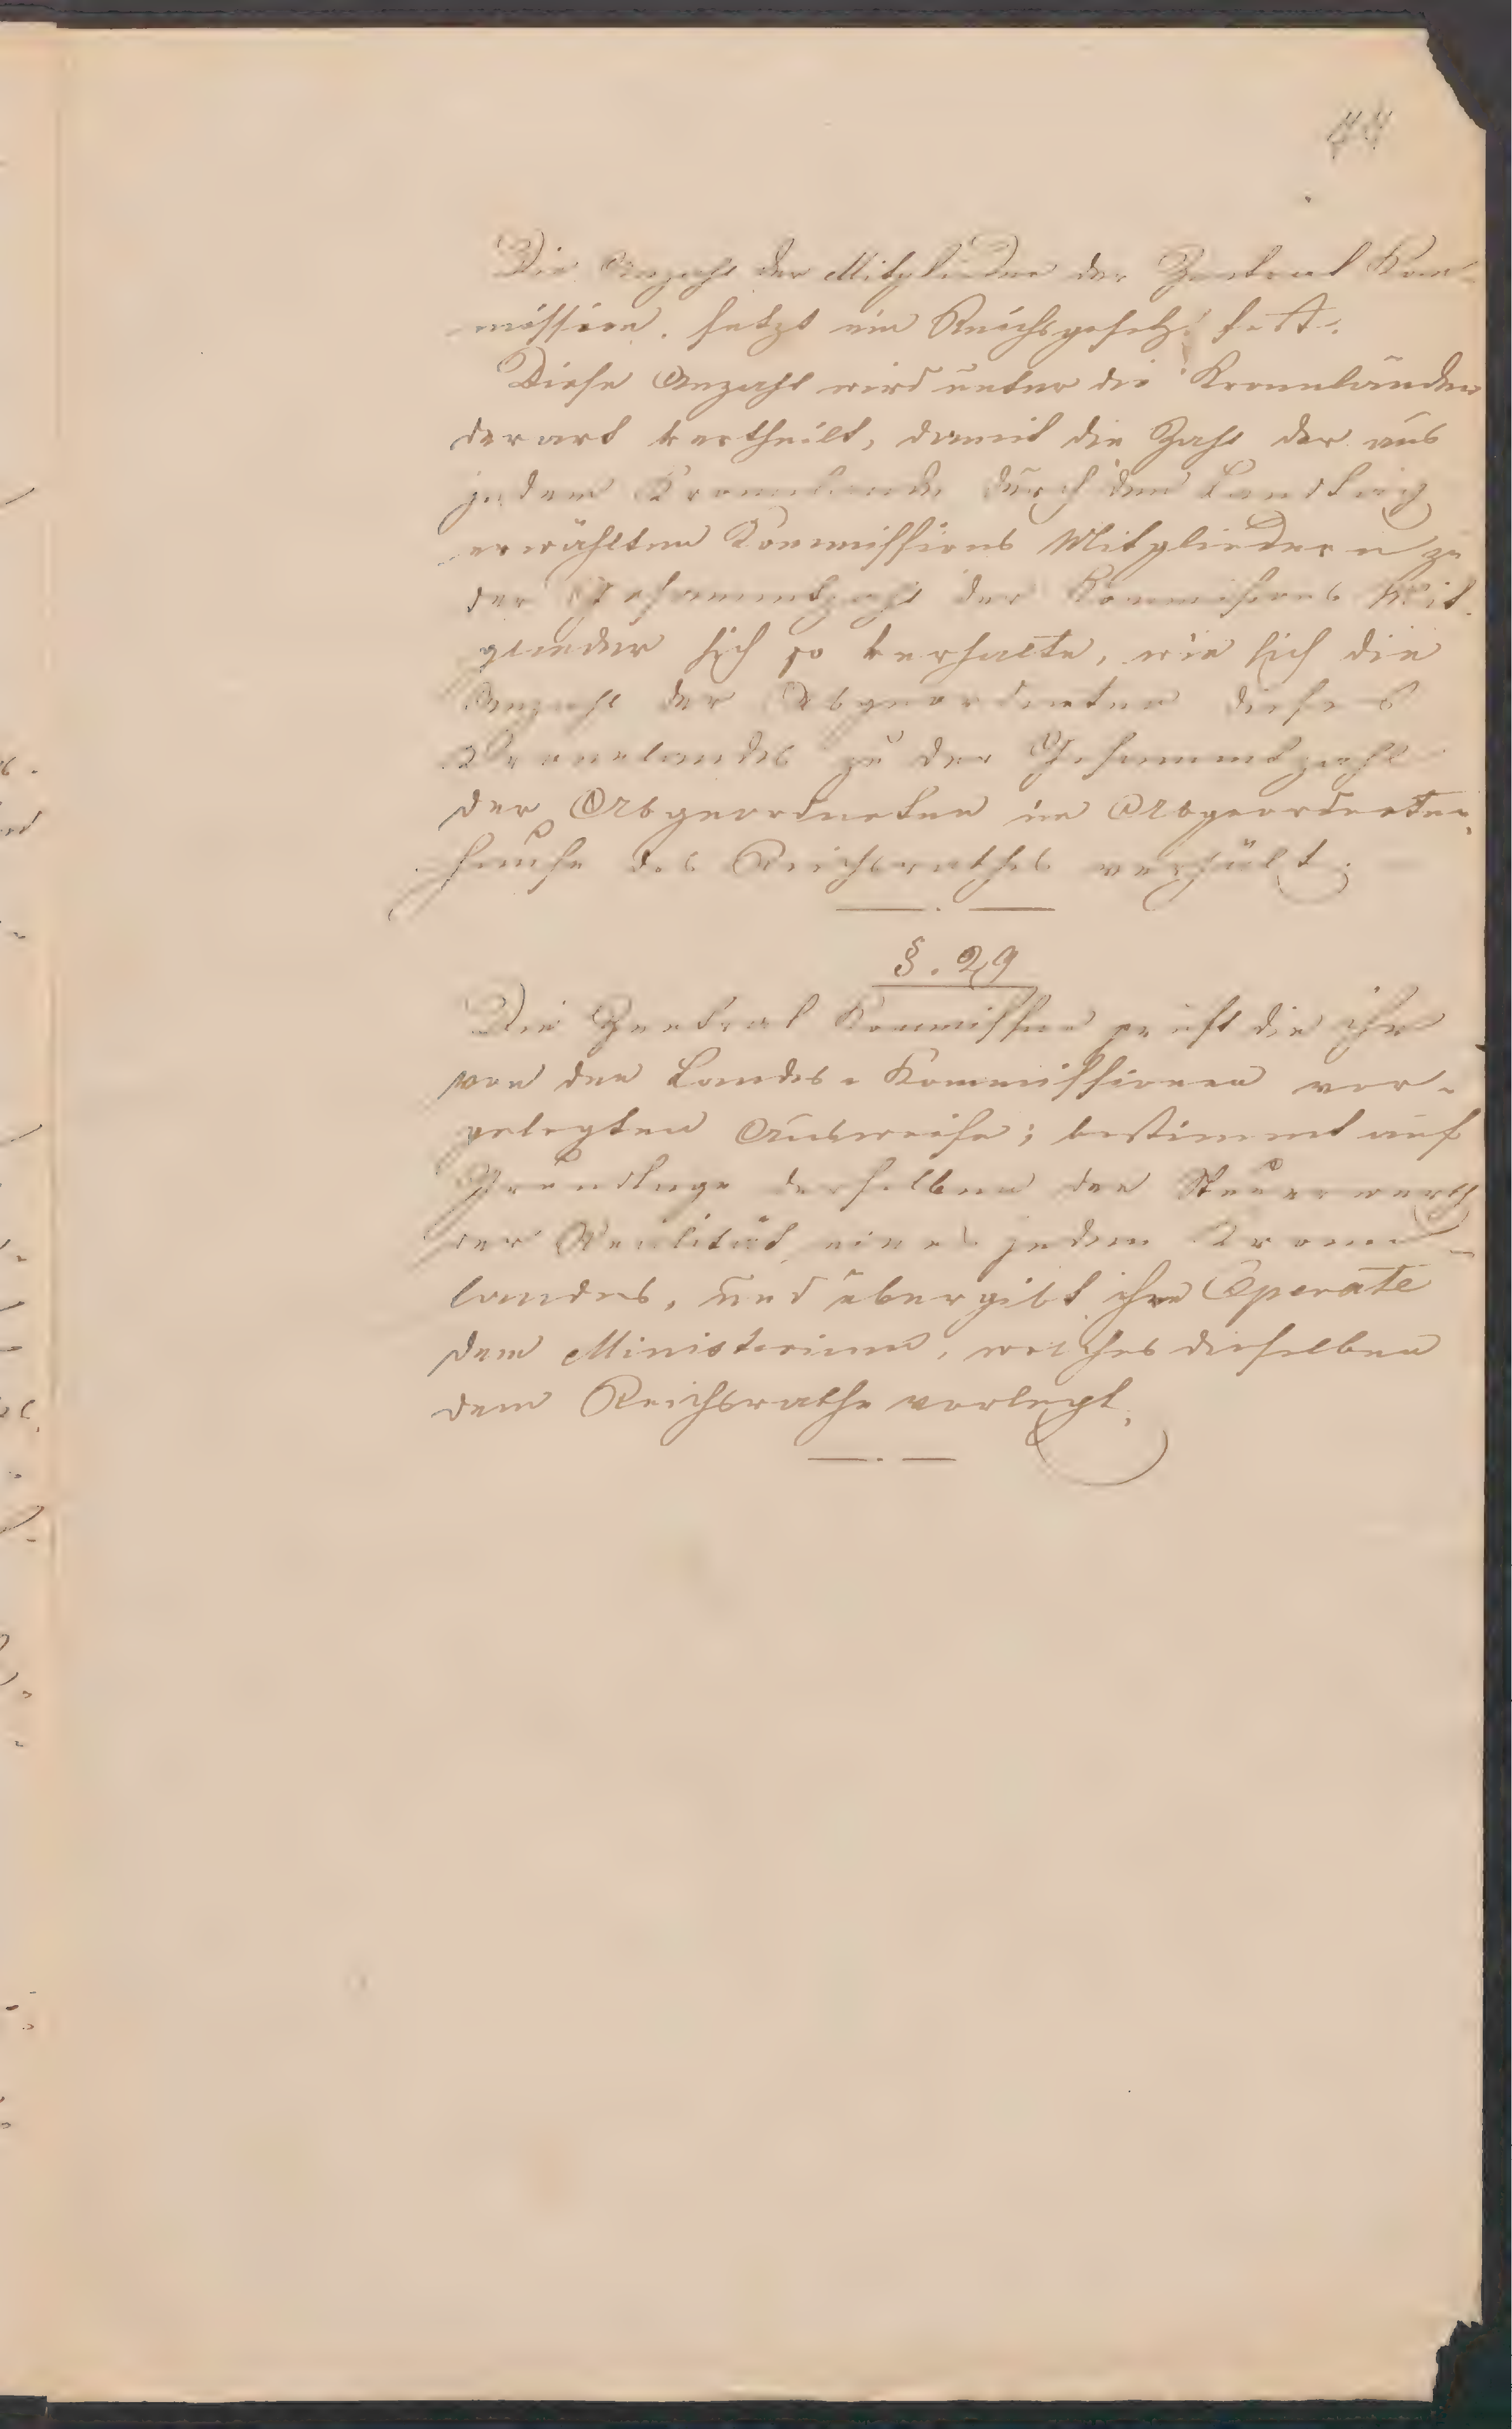 44
Die Anzahl der Mitglieder der Zentral Kom-
mission. setzt ein Reichsgesetz fest.
Diese Anzahl wird unter die Kronnländer
derart vertheilt, damit die Zahl der aus
jedem Kronnlande durch den Landtag
erwählten Kommissions Mitgliedern zu
der Gesammtzahl der Kommissions Mit-
glieder sich so verhalte, wie sich die
Anzahl der Abgeordneten dieses
Kronnlandes zu der Gesammtzahl
der Abgeordneten im Abgeordneten-
hause des Reichsrathes verhält.
§. 29
Die Zentral Kommission prüft die ihr
von den Landes-Kommissionen vor-
gelegten Ausweise; bestimmt auf
Grundlage derselben den Steuerwerth
der Realität eines jeden Kronn-
landes, und übergibt ihre Operate
dem Ministerium, welches dieselben
dem Reichsrathe vorlegt.